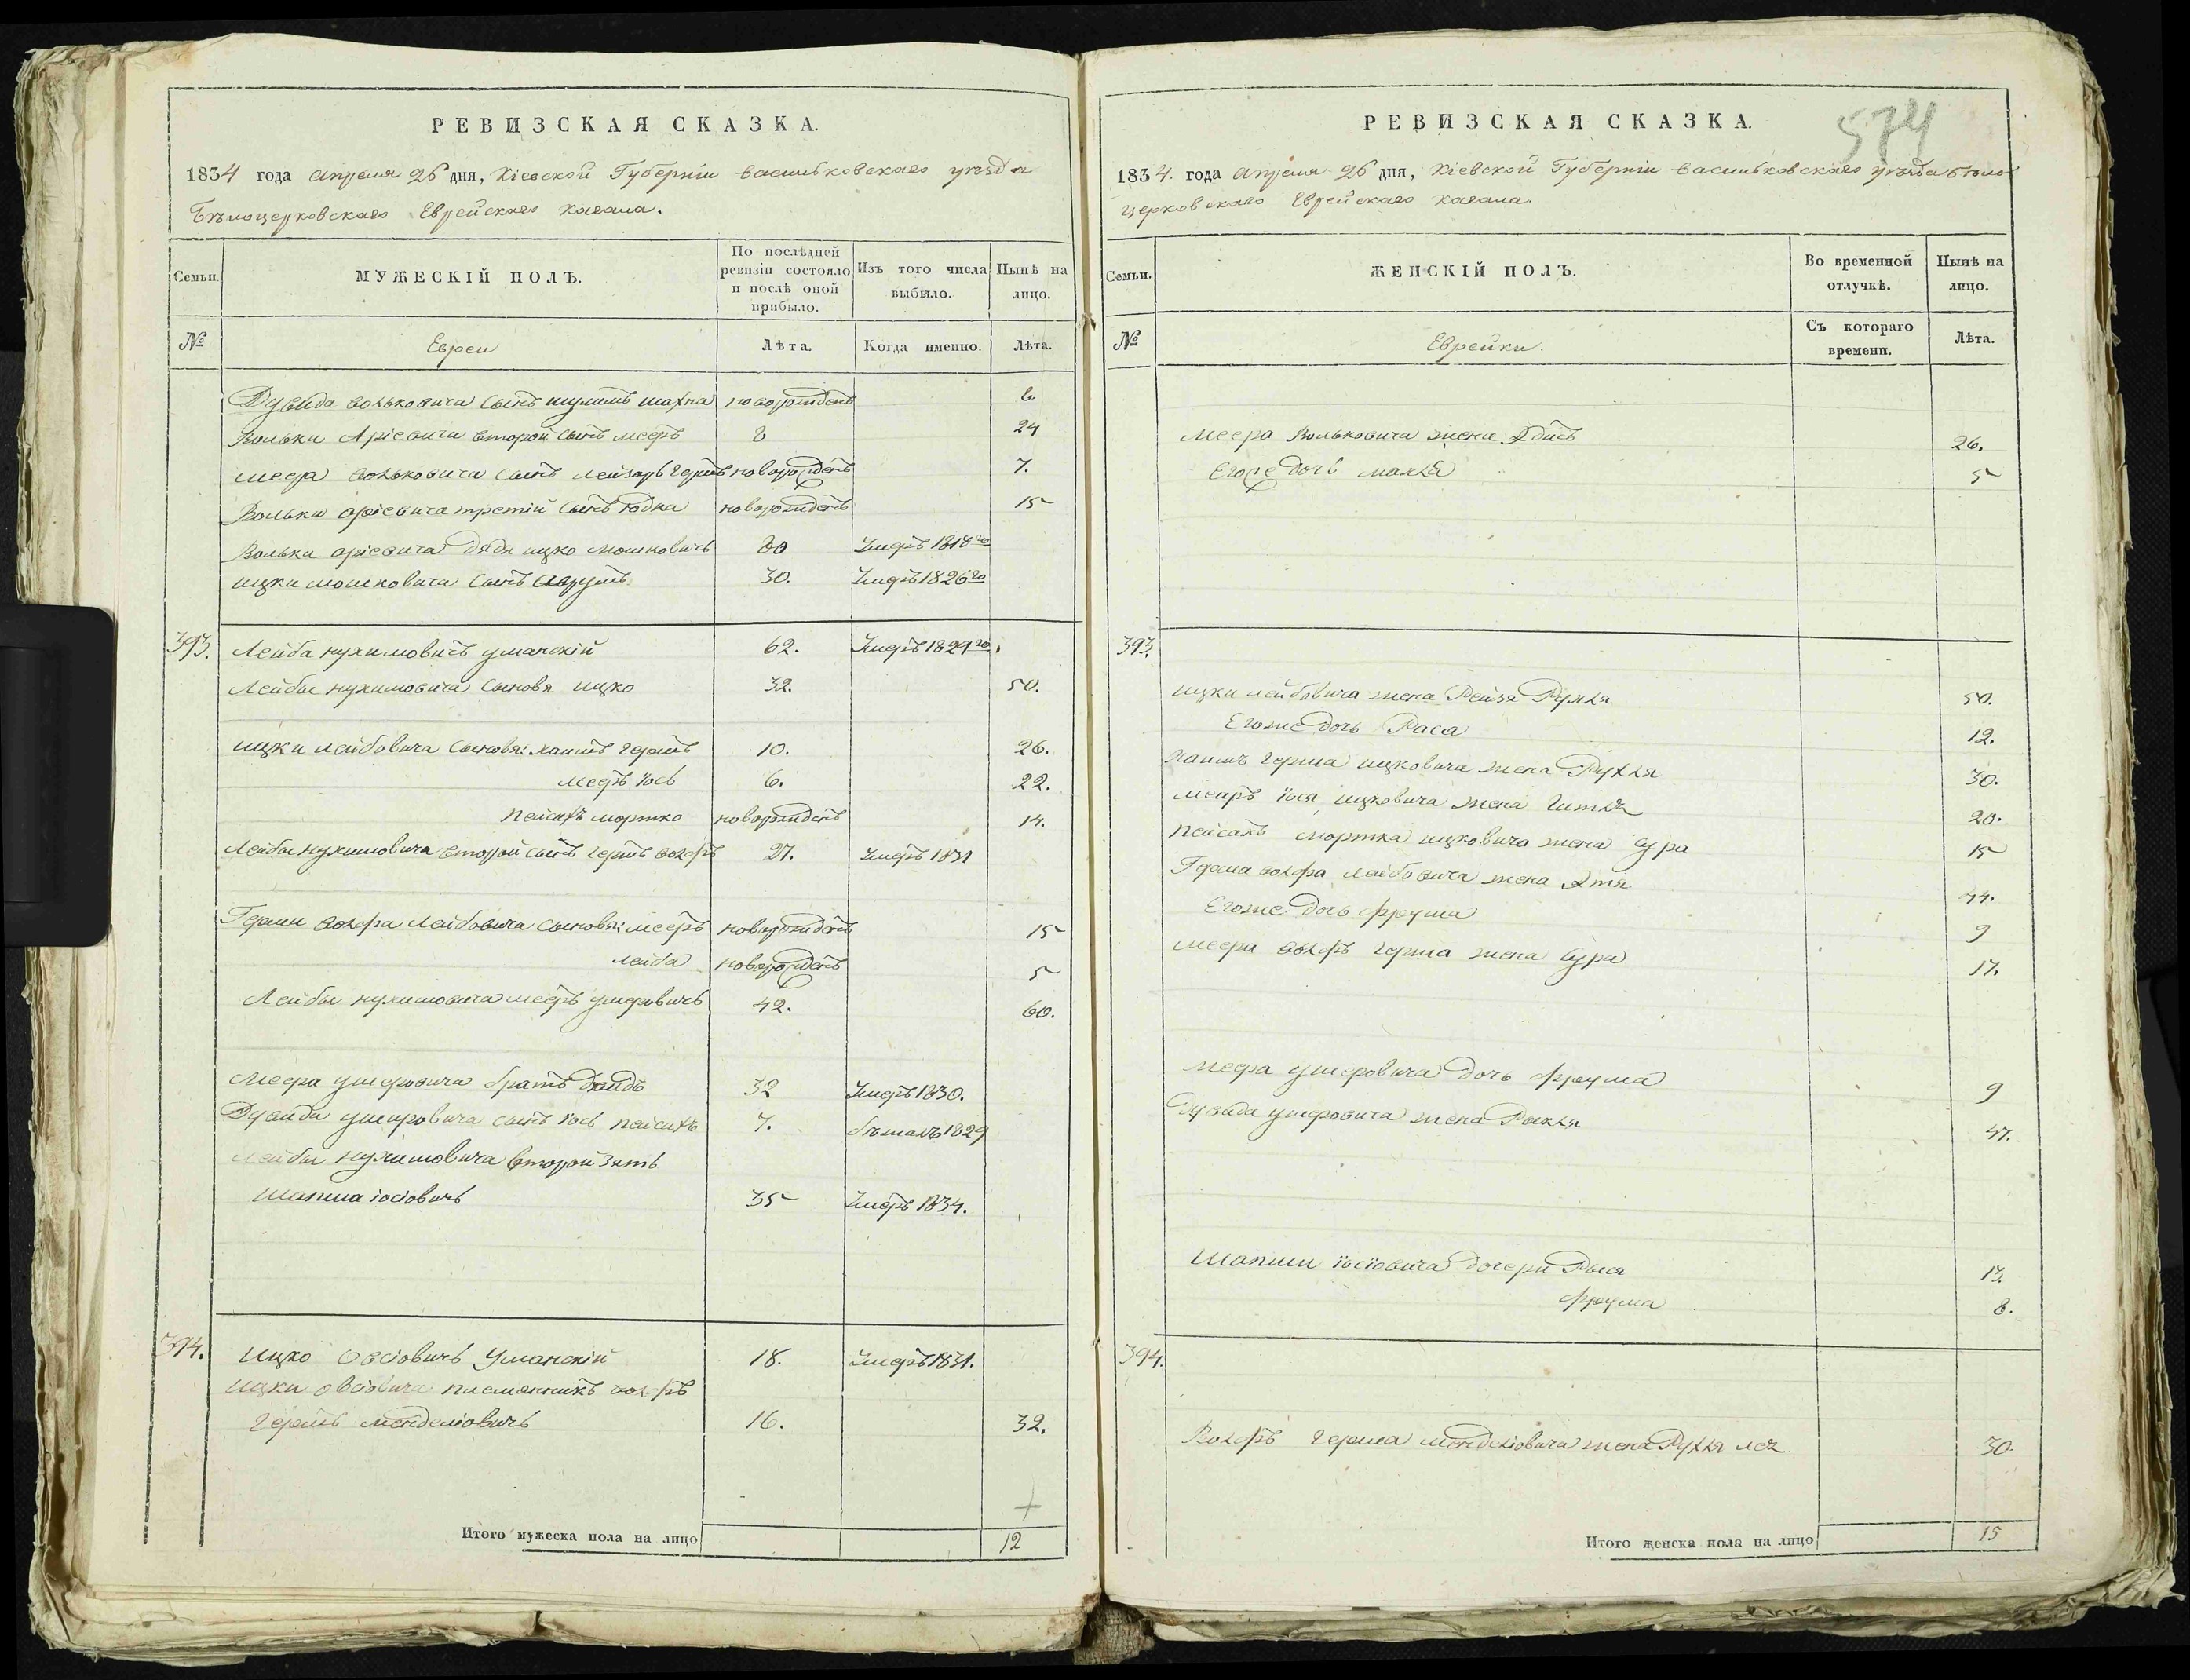 РЕВИЗСКАЯ СКАЗКА.
1834 года апреля 26 дня, Кіевской Губерніи васильковскаго уѣзда
Бѣлоцерковскаго Еврейскаго кагала.
Семьи.
МУЖЕСКІЙ ПОЛЪ.
По послѣдней ревизіи состояло и послѣ оной прибыло.
Изъ того числа выбыло.
Нынѣ на лицо.
№
Евреи
Лѣта.
Когда именно.
Лѣта.
Дувида вольковича сынъ шулимъ шахна новорожденъ 6.
Вольки Аріевича второй сынъ мееръ 8 24
меера вольковича сынъ лейзоръ гершъ новорожденъ 7.
Вольки аріевича третій сынъ юдка новорожденъ 15
Вольки аріевича дядя ицко мошковичъ 60 Умеръ 1818го
ицки мошковича сынъ аврумъ 30. Умеръ 1826го
393. Лейба нухимовичъ уманскій 62. Умеръ 1829го.
Лейбы нухимовича сыновя ицко 32. 50.
ицки лейбовича сыновя: хаимъ гершъ 10. 26.
мееръ іось 6. 22.
пейсахъ мортко новорожденъ 14.
Лейбы нухимовича второй сынъ гершъ волфъ 27. Умеръ 1831
Герши волфа лейбовича сыновя: мееръ новорожденъ 15
лейба новорожденъ 5
Лейбы нухимовича мееръ ушеровичъ 42. 60.
Меера ушеровича братъ дувидъ 32 Умеръ 1830.
Дувида ушеровича сынъ іось пейсахъ 7. бѣжалъ 1829
Лейбы нухимовича второй зять
шапша іосіовичъ 35 Умеръ 1834.
394. ицко овсіовичъ Уманскій 18. Умеръ 1831.
ицки овсіовича племянникъ волфъ
гершъ менделіовичъ 16. 32.
Итого мужеска пола на лицо 12
РЕВИЗСКАЯ СКАЗКА.
574
1834. года апреля 26 дня, Кіевской Губерніи васильковскаго уѣзда бѣло
церковскаго Еврейскаго кагала.
Семьи.
ЖЕНСКІЙ ПОЛЪ.
Во временной отлучкѣ.
Нынѣ на лицо.
№
Еврейки.
Съ котораго времени.
Лѣта.
меера Вольковича жена Эдись 26.
Егоже дочь малка 5
393.
ицки лейбовича жена Рейзя Рухля 50.
Егоже дочь Раса 12.
хаимъ герша ицковича жена Рухля 30.
меиръ іося ицковича жена гитля 20.
пейсахъ мортка ицковича жена сура 15
Герша волфа лейбовича жена Этя 44.
Егоже дочь фрума 9
меера волфъ герша жена сура 17.
меера ушеровича дочь фрума 9
Дувида ушеровича жена Рыкля 47.
Шапши іосіовича дочери Рыся 13.
фрума 8.
394.
Волфъ герша менделіовича жена Рухля лея 30.
Итого женска пола на лицо 15